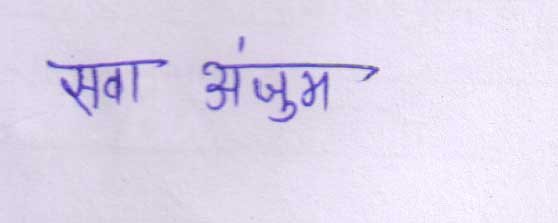 सवा अंजुम